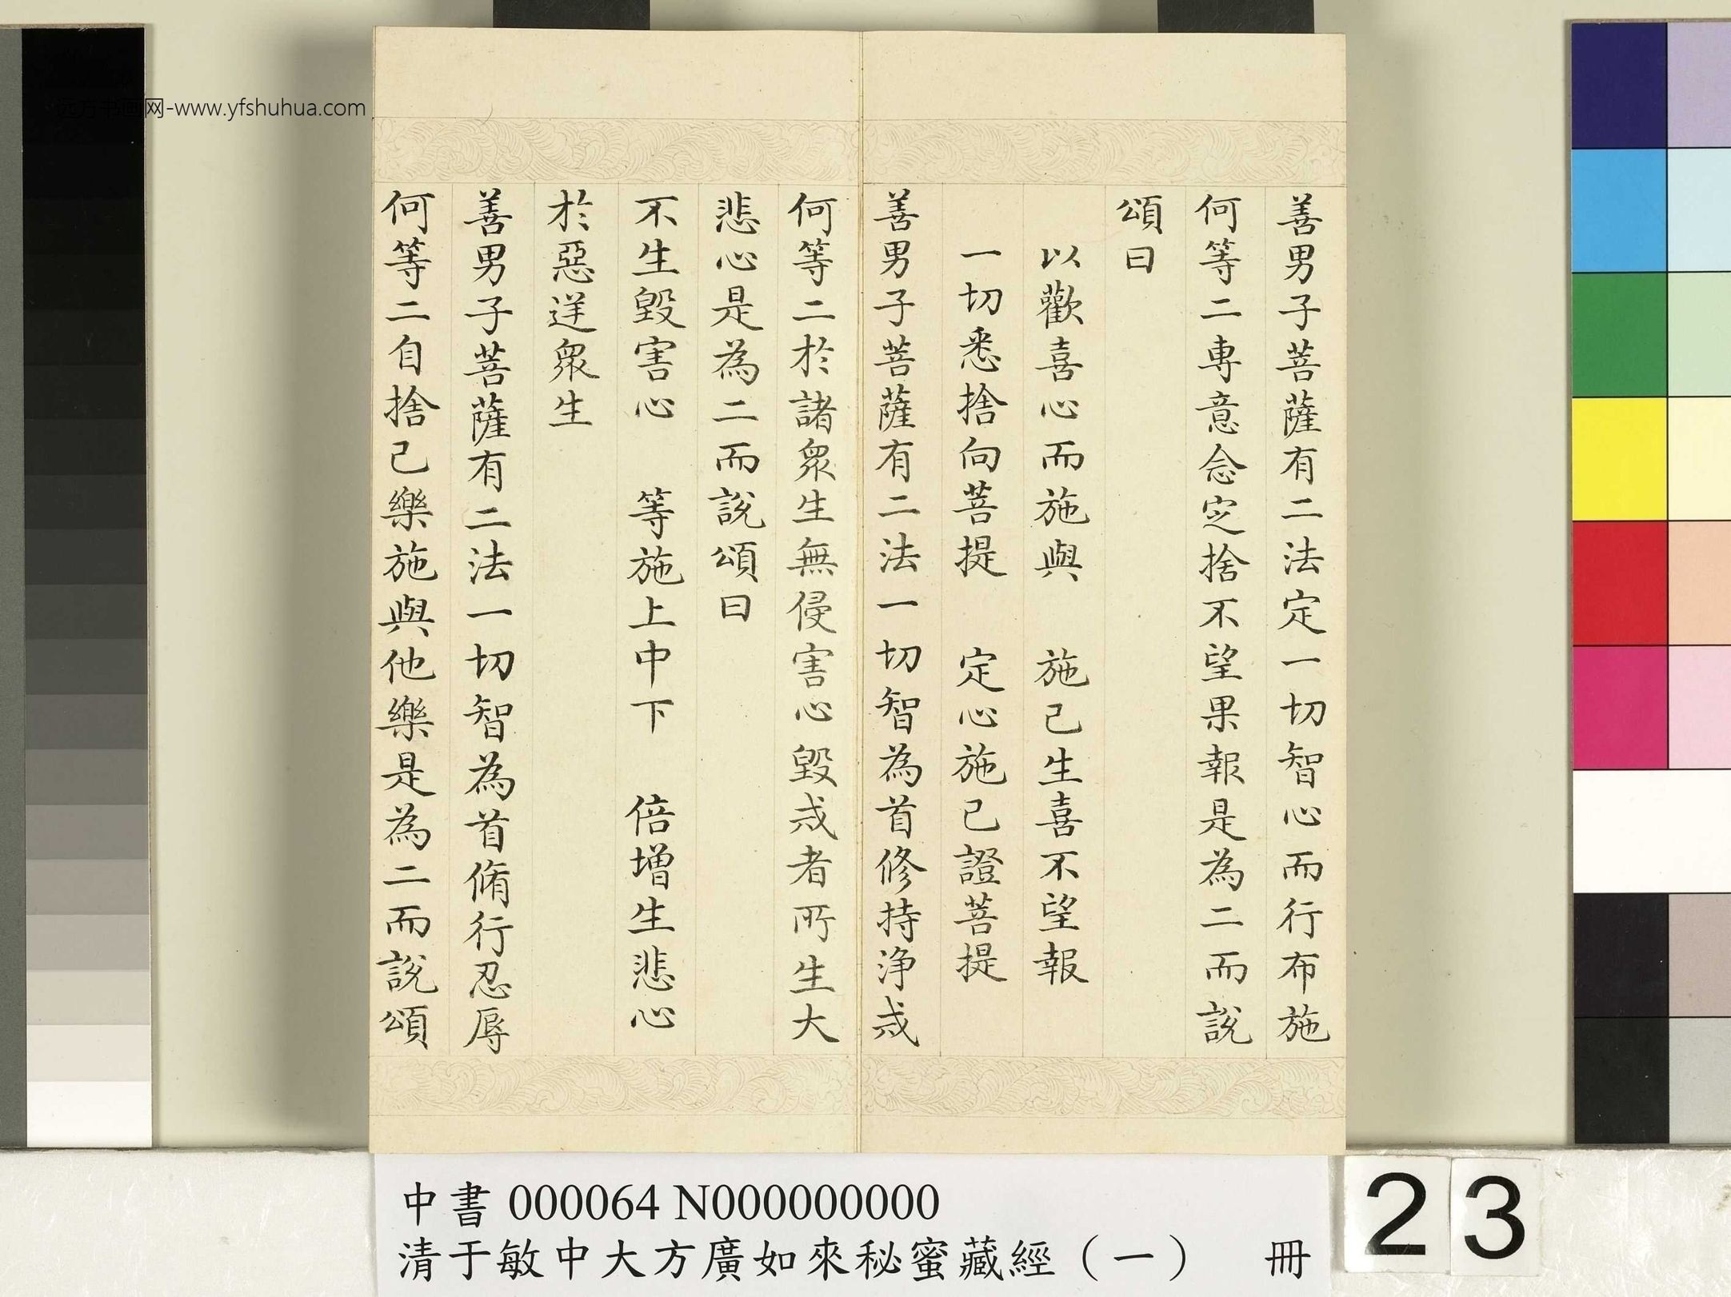 善男子菩薩有二法定一切智心而行布施
何等二專意念定捨不望果報是為二而說
頌曰
以歡喜心而施與　施已生喜不望報
一切悉捨向菩提　定心施已證菩提
善男子菩薩有二法一切智為首修持淨戒
何等二於諸眾生無侵害心毀戒者所生大
悲心是為二而說頌曰
不生毀害心　等施上中下　倍增生悲心
於惡逆眾生
善男子菩薩有二法一切智為首脩行忍辱
何等二自捨己樂施與他樂是為二而說頌
中書 000064 N000000000
清于敏中大方廣如來秘蜜藏經（一）　冊
23
-www.yfshuhua.com